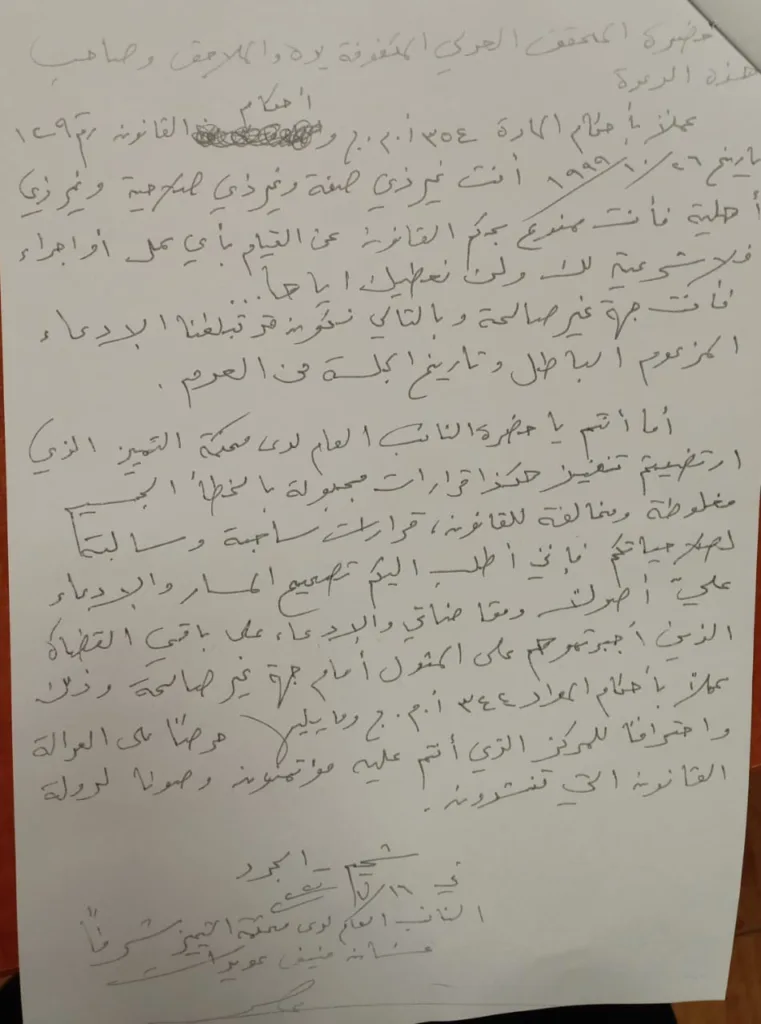 حضرة المحقق العدلي المكفوفة يده والملاحق وصاحب
هذه الدعوة
أحكام
عملاً بأحكام المادة ٣٥٤ أ.م.ج و القانون رقم ١٢٩
تاريخ ٢٦/١٠/١٩٩٩ أنت غير ذي صفة وغير ذي صلاحية وغير ذي
أهلية فأنت ممنوع بحكم القانون عن القيام بأي عمل أو اجراء
فلا شرعية لك ولن نعطيك اياها...
فأنت جهة غير صالحة وبالتالي نكون قد تبلغنا الإدعاء
المزعوم الباطل وتاريخ الجلسة من العدم.
أما أنتم يا حضرة النائب العام لدى محكمة التمييز الذي
ارتضيتم تنفيذ هكذا قرارات مجبولة بالخطأ الجسيم
مغلوطة ومخالفة للقانون، قرارات ساحبة وسالبة
لصلاحياتكم فإني أطلب اليكم تصحيح المسار والإدعاء
عليّ أصولاً ومقاضاتي والإدعاء على باقي القضاة
الذين أجبرتموهم على المثول أمام جهة غير صالحة وذلك
عملاً بأحكام المواد ٣٤٤ أ.م.ج وما يليها حرصاً على العدالة
واحتراماً للمركز الذي أنتم عليه مؤتمنون وصونا لدولة
القانون التي تنشدون.
في ١٦/
النائب العام لدى محكمة التمييز شرفاً
غسان منيف عويدات